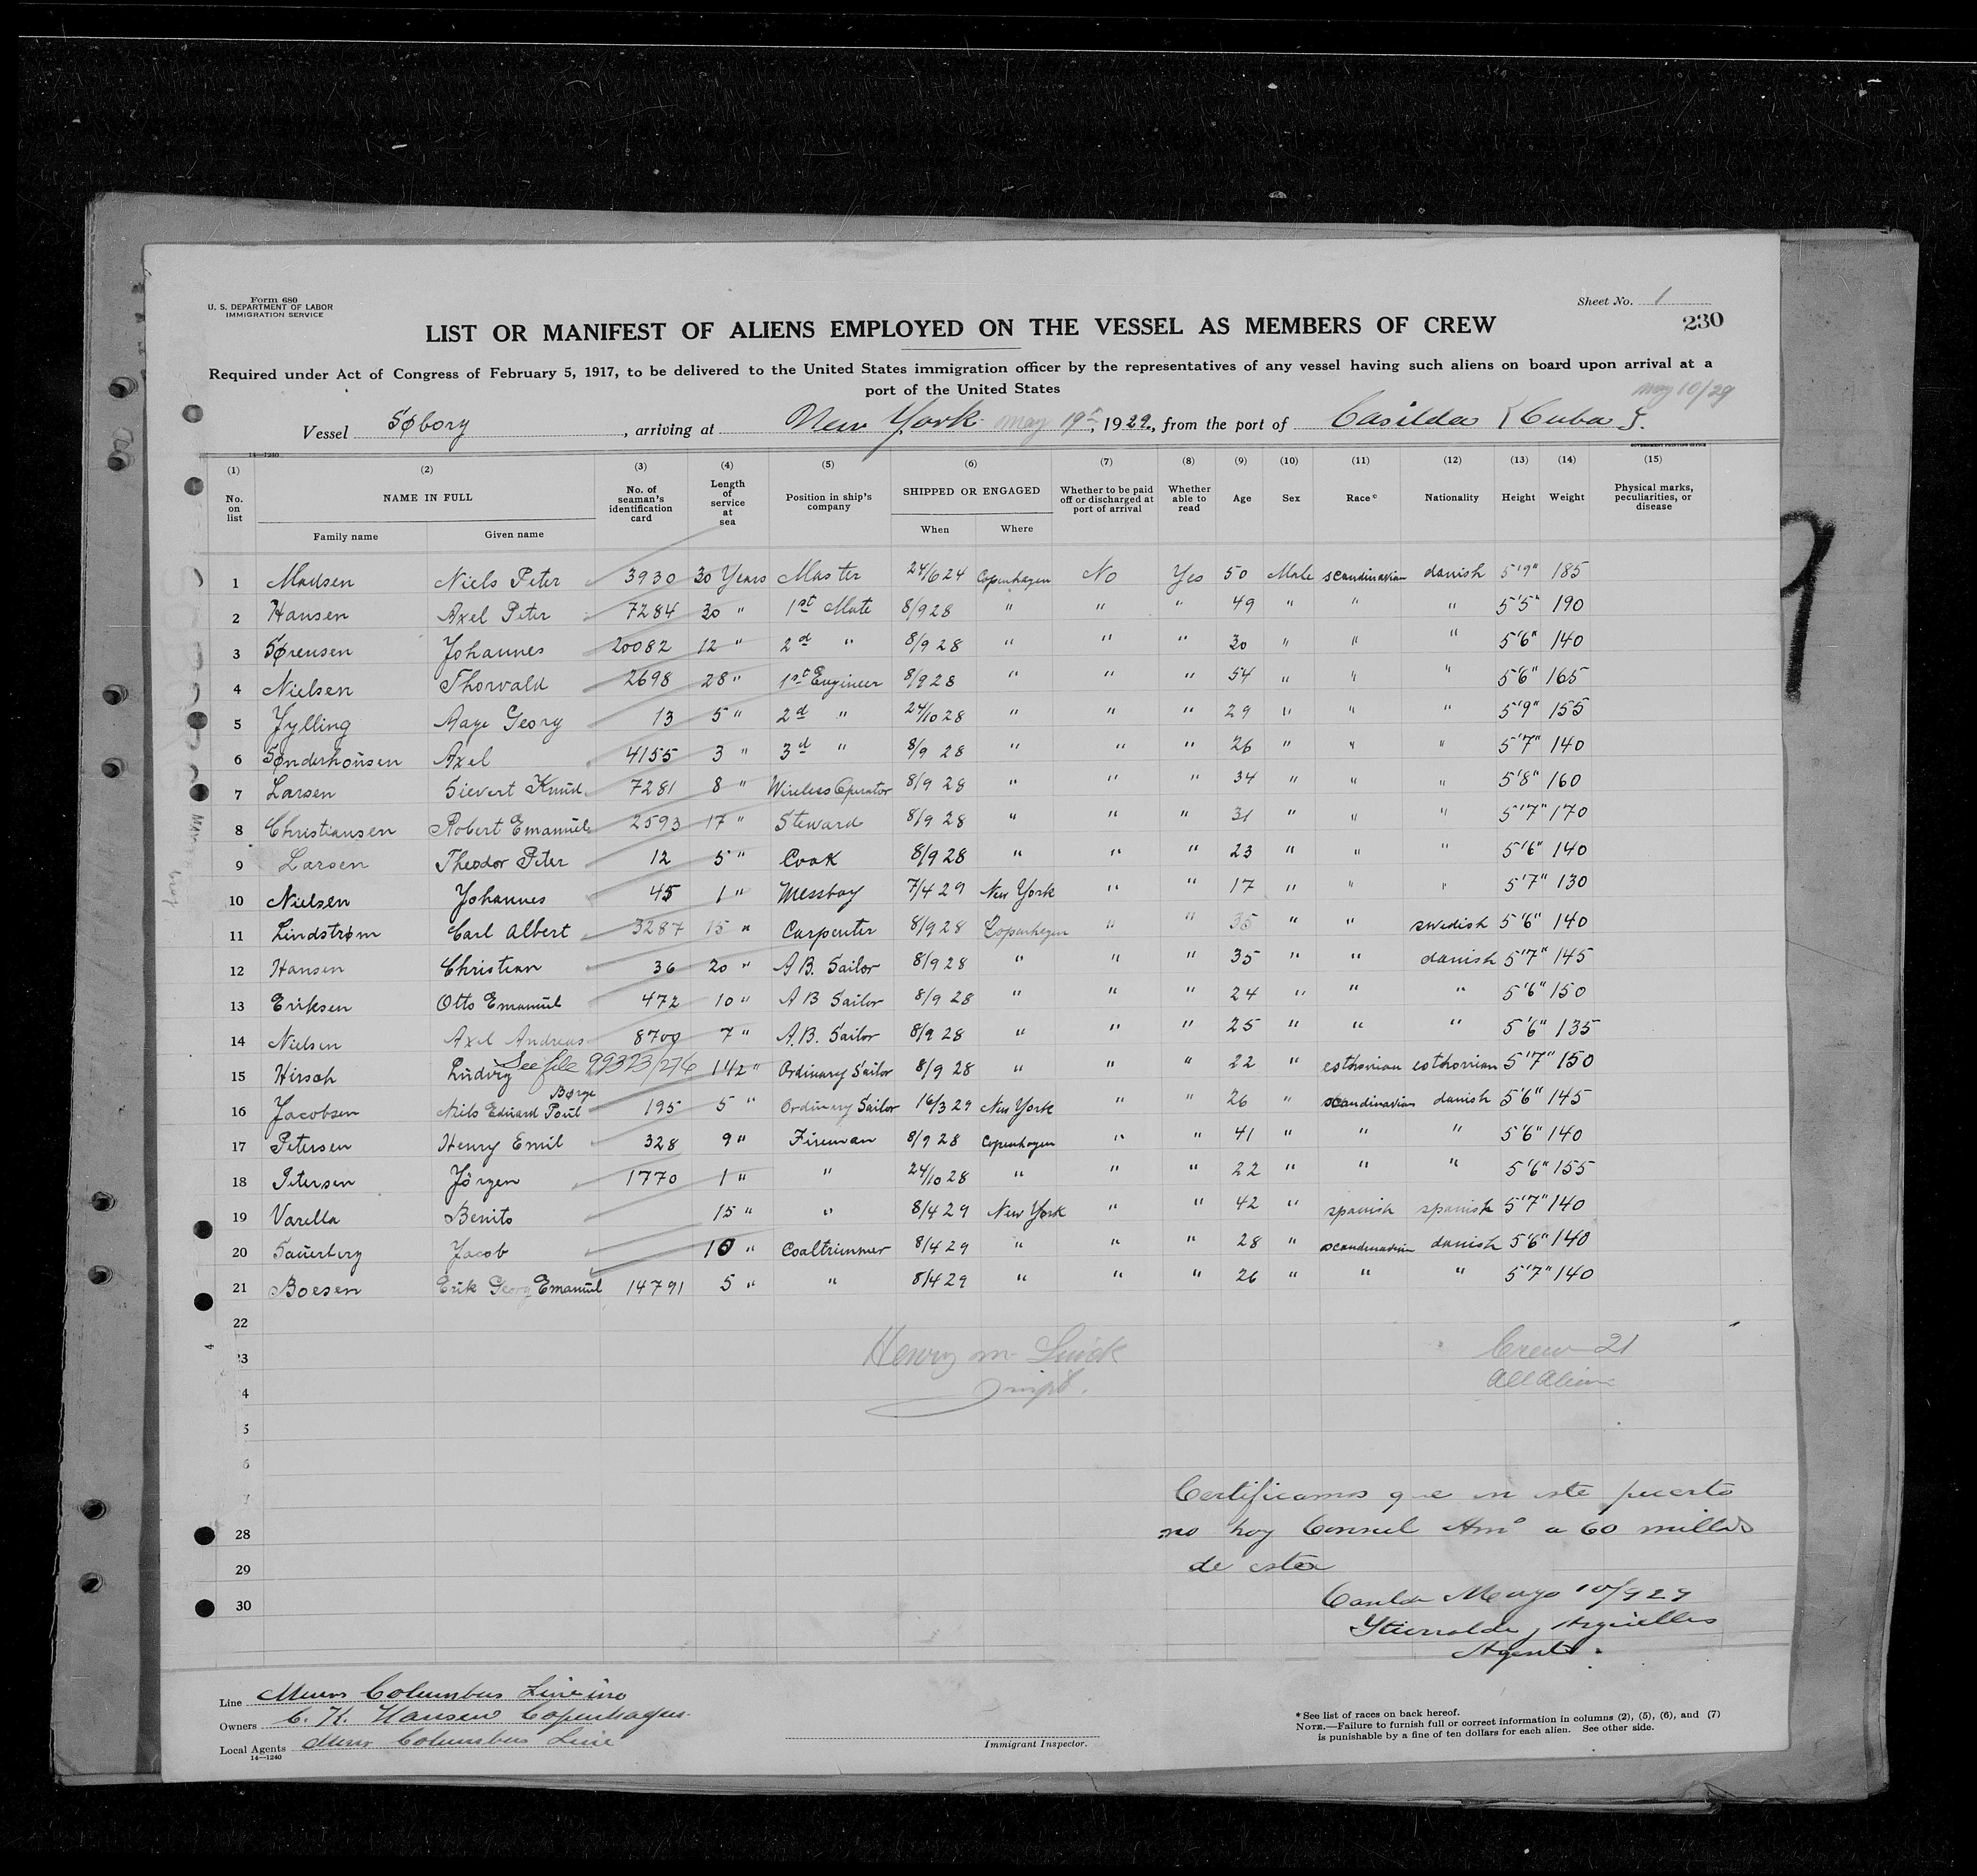 Form 680
U. S. DEPARTMENT OF LABOR
IMMIGRATION SERVICE
Sheet No. 1
230
LIST OR MANIFEST OF ALIENS EMPLOYED ON THE VESSEL AS MEMBERS OF CREW
Required under Act of Congress of February 5, 1917, to be delivered to the United States immigration officer by the representatives of any vessel having such aliens on board upon arrival at a
port of the United States
May 10/29
Vessel Søborg, arriving at New York May 19th, 1929, from the port of Casilda (Cuba).
14—1240
GOVERNMENT PRINTING OFFICE
(1) (2) (3) (4) (5) (6) (7) (8) (9) (10) (11) (12) (13) (14) (15)
No. on list NAME IN FULL Family name Given name No. of seaman's identification card Length of service at sea Position in ship's company SHIPPED OR ENGAGED When Where Whether to be paid off or discharged at port of arrival Whether able to read Age Sex Race* Nationality Height Weight Physical marks, peculiarities, or disease
1 Madsen Niels Peter 3930 30 Years Master 24/6 24 Copenhagen No Yes 50 Male scandinavian danish 5'9" 185
2 Hansen Axel Peter 7284 30 " 1st Mate 8/9 28 " " " 49 " " " 5'5" 190
3 Sørensen Johannes 20082 12 " 2d " 8/9 28 " " " 30 " " " 5'6" 140
4 Nielsen Thorvald 2698 28 " 1st Engineer 8/9 28 " " " 54 " " " 5'6" 165
5 Jylling Aage Georg 13 5 " 2d " 24/10 28 " " " 29 " " " 5'9" 155
6 Sønderhousen Axel 4155 3 " 3d " 8/9 28 " " " 26 " " " 5'7" 140
7 Larsen Sievert Knud 7281 8 " Wireless Operator 8/9 28 " " " 34 " " " 5'8" 160
8 Christiansen Robert Emanuel 2593 17 " Steward 8/9 28 " " " 31 " " " 5'7" 170
9 Larsen Theodor Peter 12 5 " Cook 8/9 28 " " " 23 " " " 5'6" 140
10 Nielsen Johannes 45 1 " Messboy 7/4 29 New York " " 17 " " " 5'7" 130
11 Lindstrøm Carl Albert 3287 15 " Carpenter 8/9 28 Copenhagen " " 35 " " swedish 5'6" 140
12 Hansen Christian 36 20 " A B. Sailor 8/9 28 " " " 35 " " danish 5'7" 145
13 Eriksen Otto Emanuel 472 10 " A B Sailor 8/9 28 " " " 24 " " " 5'6" 150
14 Nielsen Axel Andreas 8700 7 " A.B. Sailor 8/9 28 " " " 25 " " " 5'6" 135
15 Hirsch Ludvig See file 99323/276 1 1/2 " Ordinary Sailor 8/9 28 " " " 22 " esthonian esthonian 5'7" 150
16 Jacobsen Niels Edvard Poul Børge 195 5 " Ordinary Sailor 16/3 29 New York " " 26 " scandinavian danish 5'6" 145
17 Petersen Henry Emil 328 9 " Fireman 8/9 28 Copenhagen " " 41 " " " 5'6" 140
18 Petersen Jörgen 1770 1 " " 24/10 28 " " " 22 " " " 5'6" 155
19 Varella Benito 15 " " 8/4 29 New York " " 42 " spanish spanish 5'7" 140
20 Sauerberg Jacob 10 " Coaltrimmer 8/4 29 " " " 28 " scandinavian danish 5'6" 140
21 Boesen Erik Georg Emanuel 14791 5 " " 8/4 29 " " " 26 " " " 5'7" 140
22
23 Henry M Crew 21
4 Insptr. All Alien
5
6
7
Certificamos que en este puerto
28 no hay Consul Amo a 60 millas
29 de esta
30 Casilda Mayo 10/929
Argüelles
Agents.
Line Columbus Line inc
Owners C. K. Hansen Copenhagen
Local Agents Columbus Line
14—1240
Immigrant Inspector.
* See list of races on back hereof.
NOTE.—Failure to furnish full or correct information in columns (2), (5), (6), and (7)
is punishable by a fine of ten dollars for each alien. See other side.